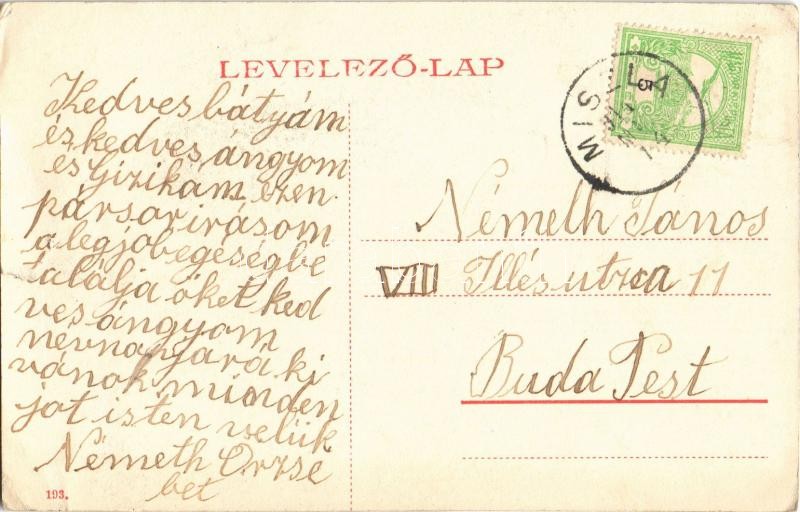 LEVELEZŐ-LAP
Kedves bátyám
és kedves ángyom
és Gizikam ezen
pár sar irásom
a legjobegéségbe
talália öket ked
ves ángyom
nevnapjará ki
vánok minden
jot isten velük
Németh Orzse
bet
193.
MISLA
Németh János
VIII Illés utzca 11
Buda Pest